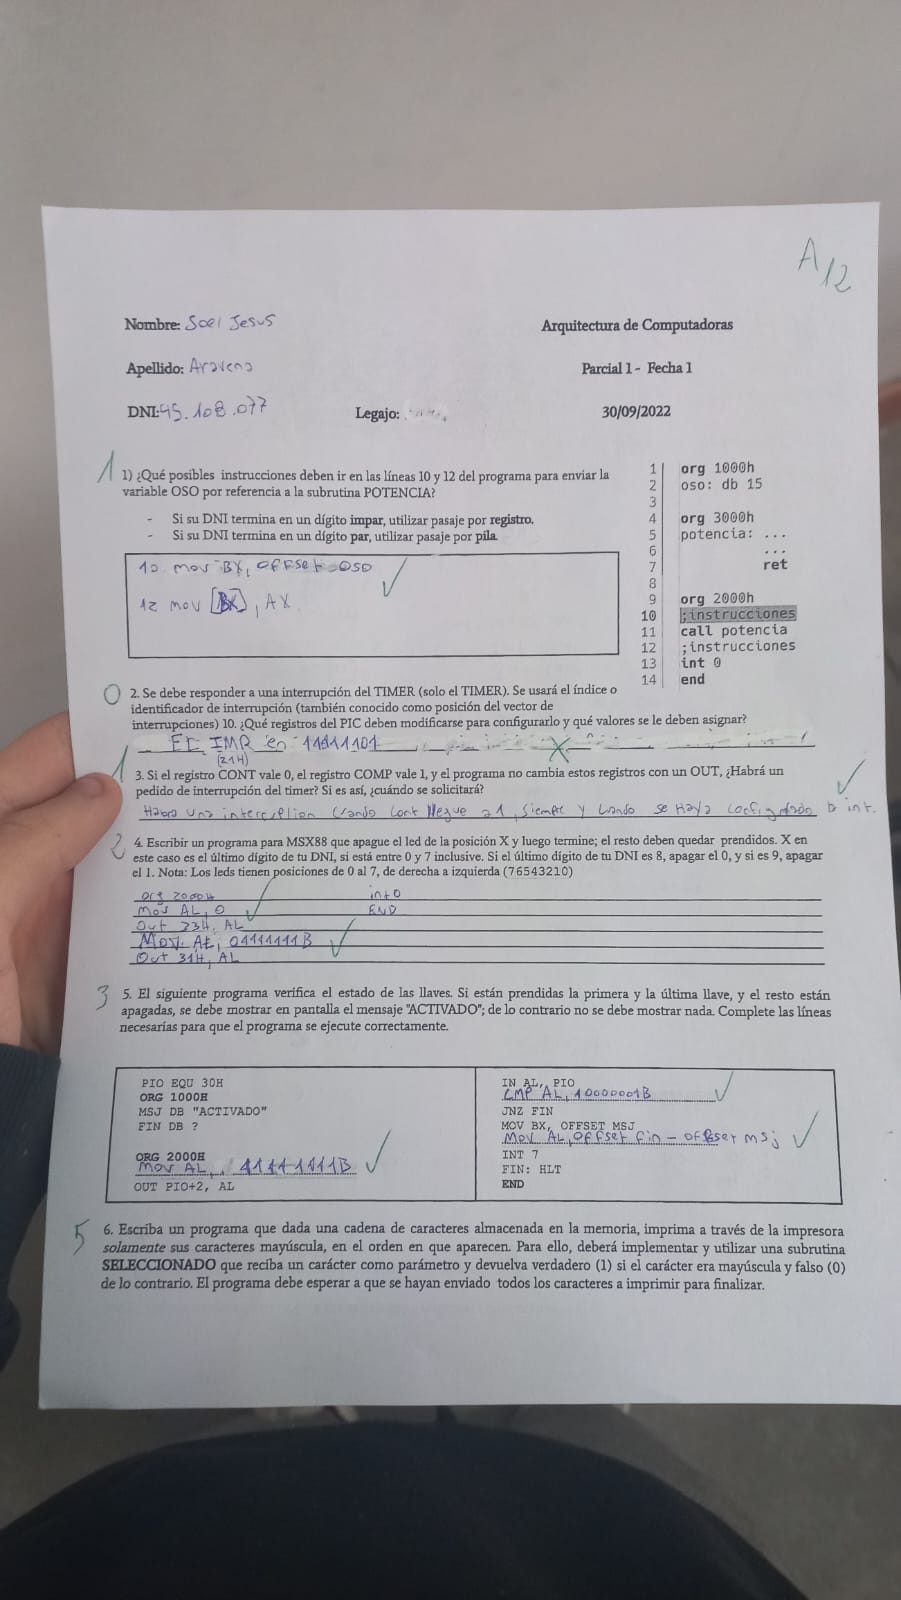 A12
Nombre: Joel Jesus
Arquitectura de Computadoras
Apellido: Aravena
Parcial 1 - Fecha 1
DNI: 45.108.077
Legajo:
30/09/2022
1
1) ¿Qué posibles instrucciones deben ir en las líneas 10 y 12 del programa para enviar la
variable OSO por referencia a la subrutina POTENCIA?
- Si su DNI termina en un dígito impar, utilizar pasaje por registro.
- Si su DNI termina en un dígito par, utilizar pasaje por pila.
10. mov BX, offset OSO
12 mov [BX], AX
1 org 1000h
2 oso: db 15
3
4 org 3000h
5 potencia: ...
6 ...
7 ret
8
9 org 2000h
10 ;instrucciones
11 call potencia
12 ;instrucciones
13 int 0
14 end
0
2. Se debe responder a una interrupción del TIMER (solo el TIMER). Se usará el índice o
identificador de interrupción (también conocido como posición del vector de
interrupciones) 10. ¿Qué registros del PIC deben modificarse para configurarlo y qué valores se le deben asignar?
El IMR en 11111101
(21H)
1
3. Si el registro CONT vale 0, el registro COMP vale 1, y el programa no cambia estos registros con un OUT, ¿Habrá un
pedido de interrupción del timer? Si es así, ¿cuándo se solicitará?
Habra una cuando Cont llegue a 1, siempre y se haya la int.
2
4. Escribir un programa para MSX88 que apague el led de la posición X y luego termine; el resto deben quedar prendidos. X en
este caso es el último dígito de tu DNI, si está entre 0 y 7 inclusive. Si el último dígito de tu DNI es 8, apagar el 0, y si es 9, apagar
el 1. Nota: Los leds tienen posiciones de 0 al 7, de derecha a izquierda (76543210)
org 2000H
Mov AL, 0
Out 33H, AL
Mov AL, 01111111B
Out 31H, AL
int 0
END
3
5. El siguiente programa verifica el estado de las llaves. Si están prendidas la primera y la última llave, y el resto están
apagadas, se debe mostrar en pantalla el mensaje "ACTIVADO"; de lo contrario no se debe mostrar nada. Complete las líneas
necesarias para que el programa se ejecute correctamente.
PIO EQU 30H
ORG 1000H
MSJ DB "ACTIVADO"
FIN DB ?
ORG 2000H
Mov AL, 11111111B
OUT PIO+2, AL
IN AL, PIO
CMP AL, 10000001B
JNZ FIN
MOV BX, OFFSET MSJ
Mov AL, offset fin - offset msj
INT 7
FIN: HLT
END
5
6. Escriba un programa que dada una cadena de caracteres almacenada en la memoria, imprima a través de la impresora
solamente sus caracteres mayúscula, en el orden en que aparecen. Para ello, deberá implementar y utilizar una subrutina
SELECCIONADO que reciba un carácter como parámetro y devuelva verdadero (1) si el carácter era mayúscula y falso (0)
de lo contrario. El programa debe esperar a que se hayan enviado todos los caracteres a imprimir para finalizar.